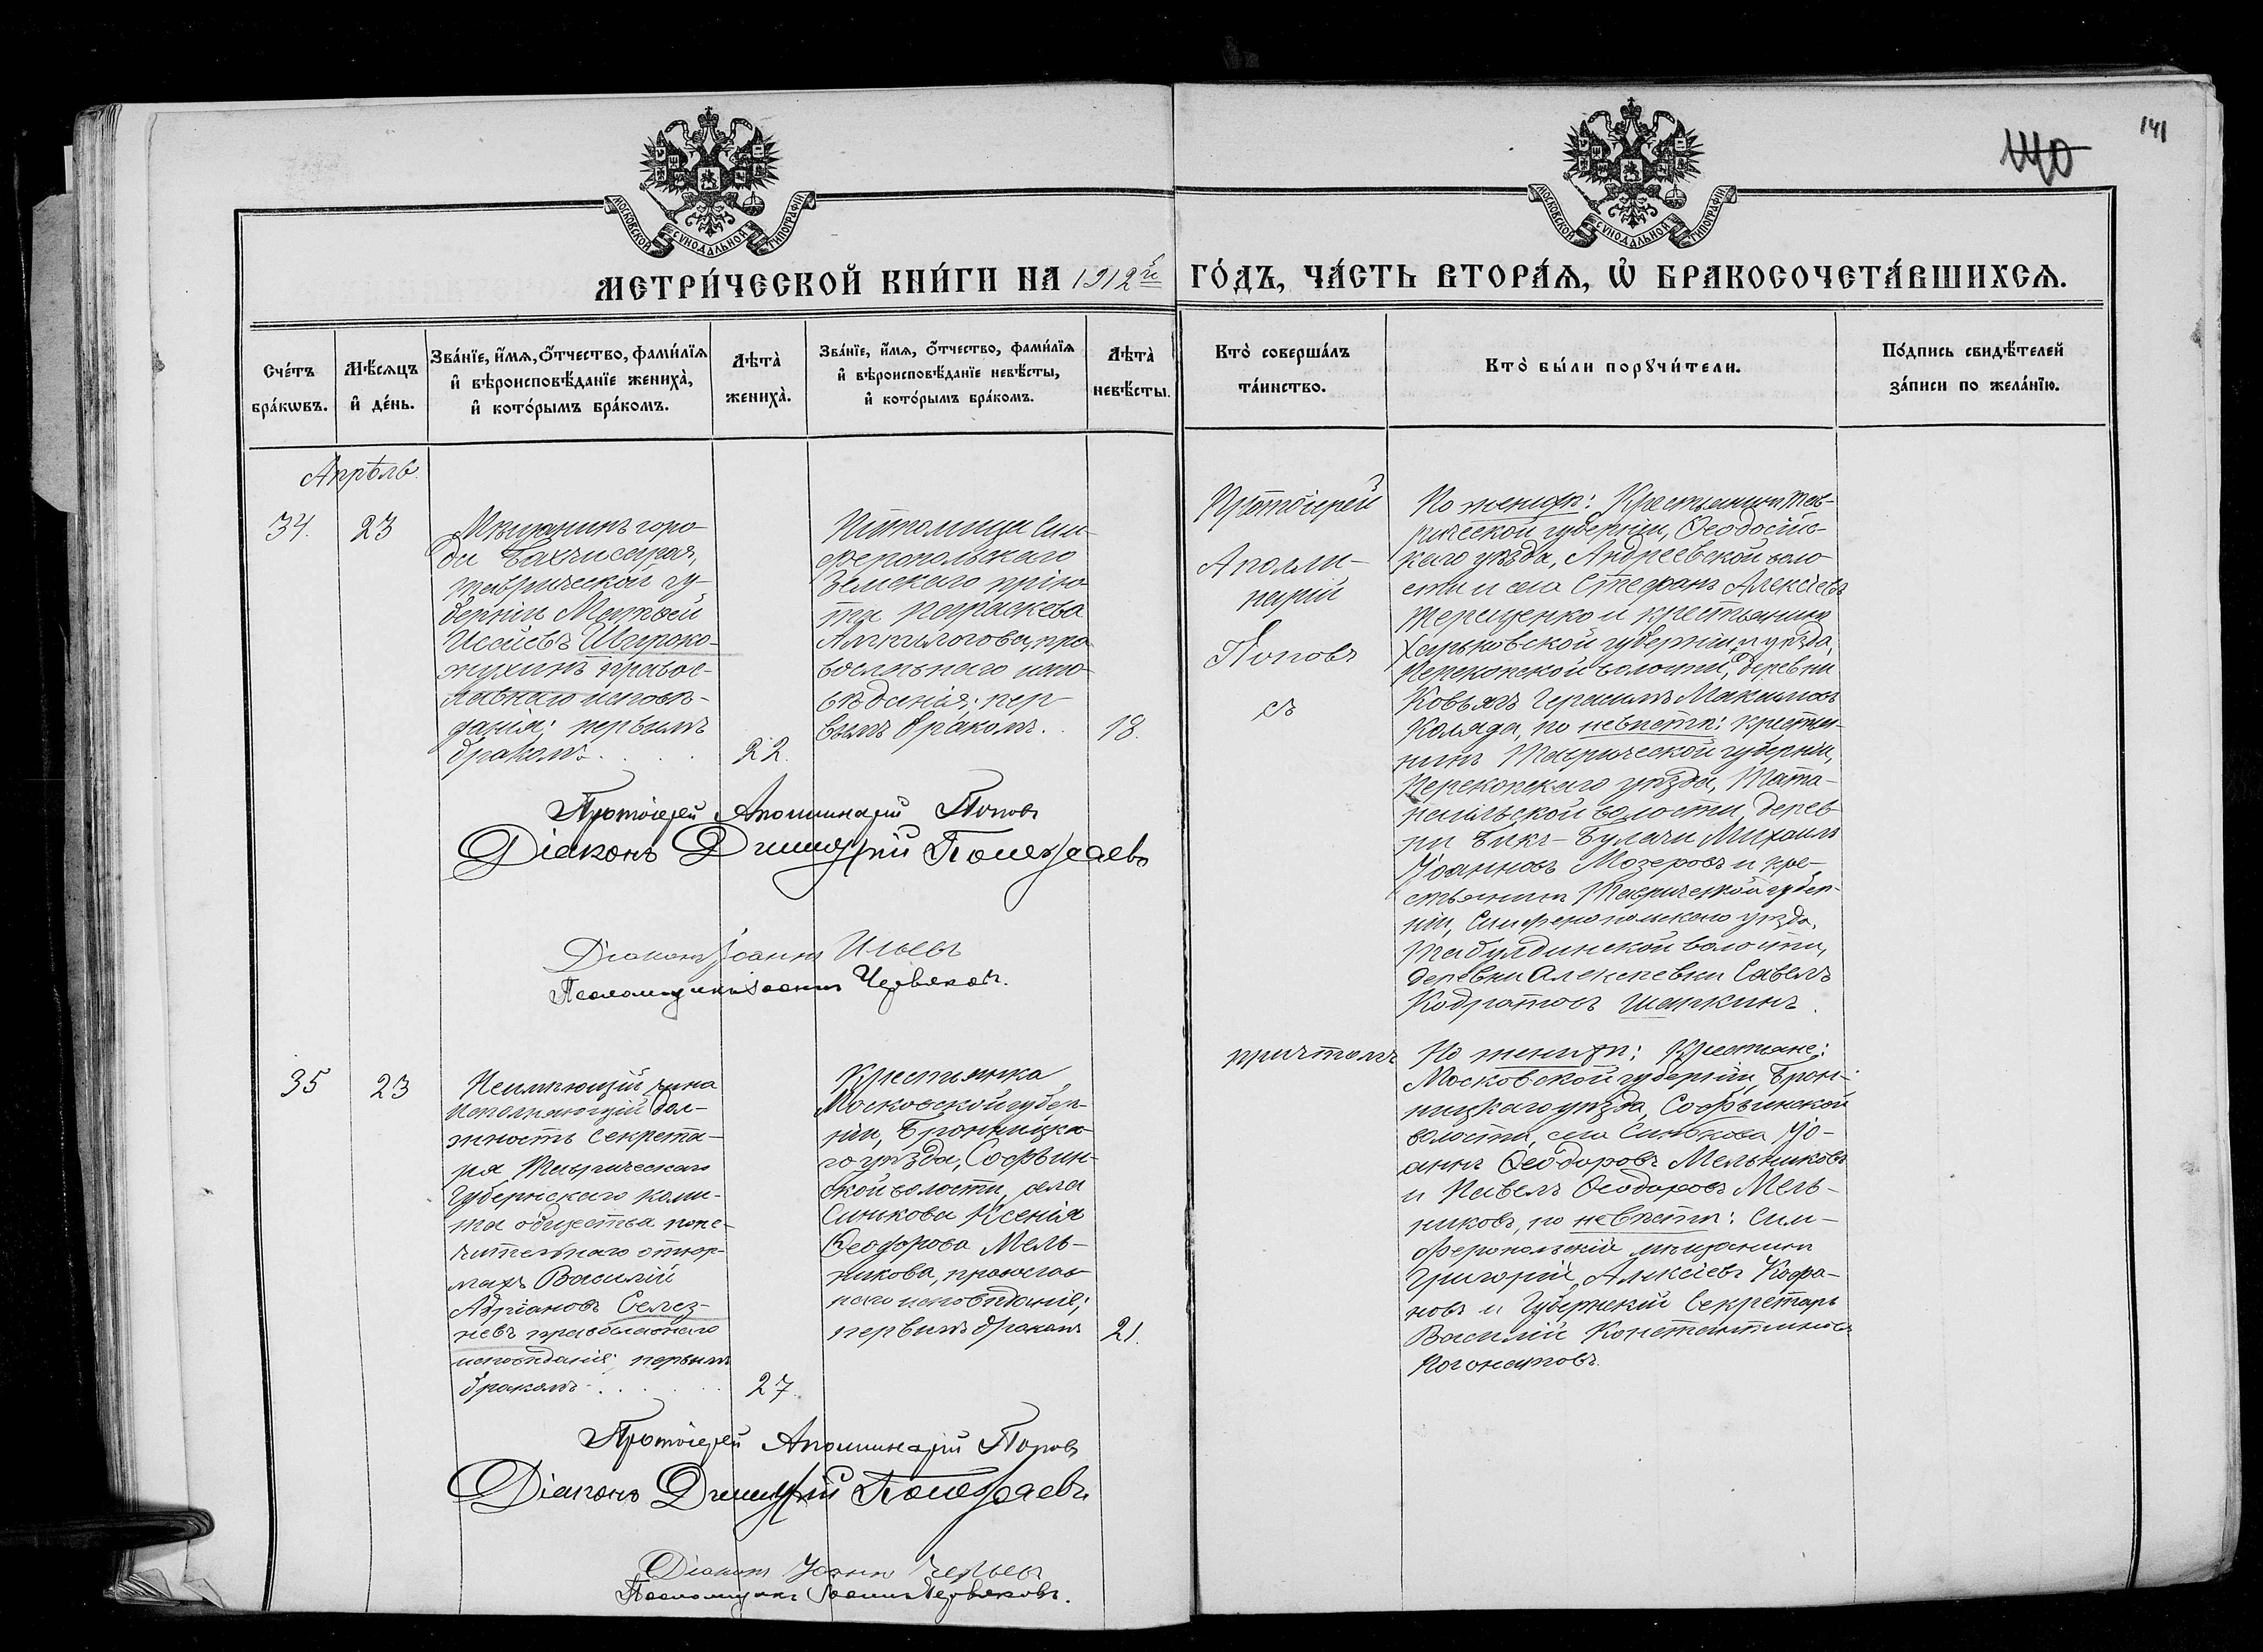 141
140
МОСКОВСКОЙ СѴНОДАЛЬНОЙ ТИПОГРАФІИ
МОСКОВСКОЙ СѴНОДАЛЬНОЙ ТИПОГРАФІИ
МЕТРИ́ЧЕСКОЙ КНИ́ГИ НА 1912й ГО́ДЪ, ЧА́СТЬ ВТОРА́Я, Ѡ҆ БРАКОСОЧЕТА́ВШИХСЯ.
Сче́тъ
бра́кѡвъ.
Мѣ́сяцъ
и҆ де́нь.
Зва́нїе, и҆́мя, ѻ҆́тчество, фами́лїя
и҆ вѣроисповѣ́данїе жениха̀,
и҆ кото́рымъ бра́комъ.
Лѣта̀
жениха̀.
Зва́нїе, и҆́мя, ѻ҆́тчество, фами́лїя
и҆ вѣроисповѣ́данїе невѣ́сты,
и҆ кото́рымъ бра́комъ.
Лѣта̀
невѣ́сты.
Кто̀ соверша́лъ
та́инство.
Кто̀ бы́ли порꙋчи́тели.
По́дпись свидѣ́телей
за́писи по жела́нїю.
Апрѣль.
34.
23
Мѣщанинъ горо-
да Бахчисарая,
Таврической гу-
берніи Матвей
Исаевъ Широко-
жухинъ правос-
лавнаго исповѣ-
данія; первымъ
бракомъ
22.
Питомица Сим-
феропольскаго
Земскаго прію-
та Параскева
право-
славнаго испо-
вѣданія; пер-
вымъ бракомъ.
18.
Протоіерей
Аполли-
нарій
Поповъ
съ
По женихѣ: Крестьянинъ Тав-
рической губерніи, Ѳеодосійс-
каго уѣзда, Андреевской воло
сти и села Стефанъ Алексѣевъ
Терещенко и крестьянинъ
Харьковской губерніи и уѣзда,
Перекопской волости, деревни
Ковьягъ Герасимъ Максимовъ
Коляда, по невѣстѣ: крестья-
нинъ Таврической губерніи,
Перекопскаго уѣзда, Тата-
нашльской волости дерев
ни Бикъ-Булачи Михаилъ
Іоанновъ Мозеровъ и кре-
стьянинъ Таврической губер-
ніи, Симферопольскаго уѣзда,
Табулдинской волости,
деревни Алексѣевки Савелъ
Кодратовъ Шапкинъ.
Протоіерей Аполлинарій Поповъ
Діаконъ Димитрій
Діаконъ Іоаннъ Ильевъ
Псаломщикъ Іоаннъ Червяковъ.
35
23
Неимѣющій чина
Исполняющій дол-
жность Секрета-
ря Таврическаго
Губернскаго коми-
та общества попе-
чительнаго отюр-
махъ Василій
Адріановъ Селез-
невъ православнаго
исповѣданія; первымъ
бракомъ
27.
Крестьянка
Московской губер-
ніи, Бронницка-
го уѣзда, Софьин-
ской волости, села
Синькова Ксенія
Ѳеодорова Мель-
никова, православ
наго исповѣданія;
первымъ бракомъ
21.
причтомъ
По женихѣ: Крестьяне:
Московской губерніи, Брон-
ницкаго уѣзда, Софьинской
волости, села Синькова Іо-
аннъ Ѳеодоровъ Мельниковъ
и Павелъ Ѳеодоровъ Мель-
никовъ, по невѣстѣ: Сим-
феропольскій мѣщанинъ
Григорій Алексѣевъ Кафа-
новъ и Губернскій Секретарь
Василій Константиновъ
Погонатовъ.
Протоіерей Аполлинарій Поповъ
Діаконъ Димитрій
Діаконъ Іоаннъ Ильевъ
Псаломщикъ Іоаннъ Червяковъ.